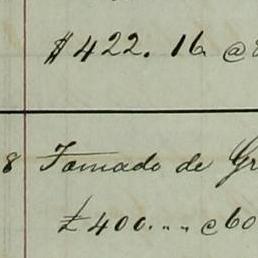 $422. 16 @
8 Tomado de Gr
£400... @60